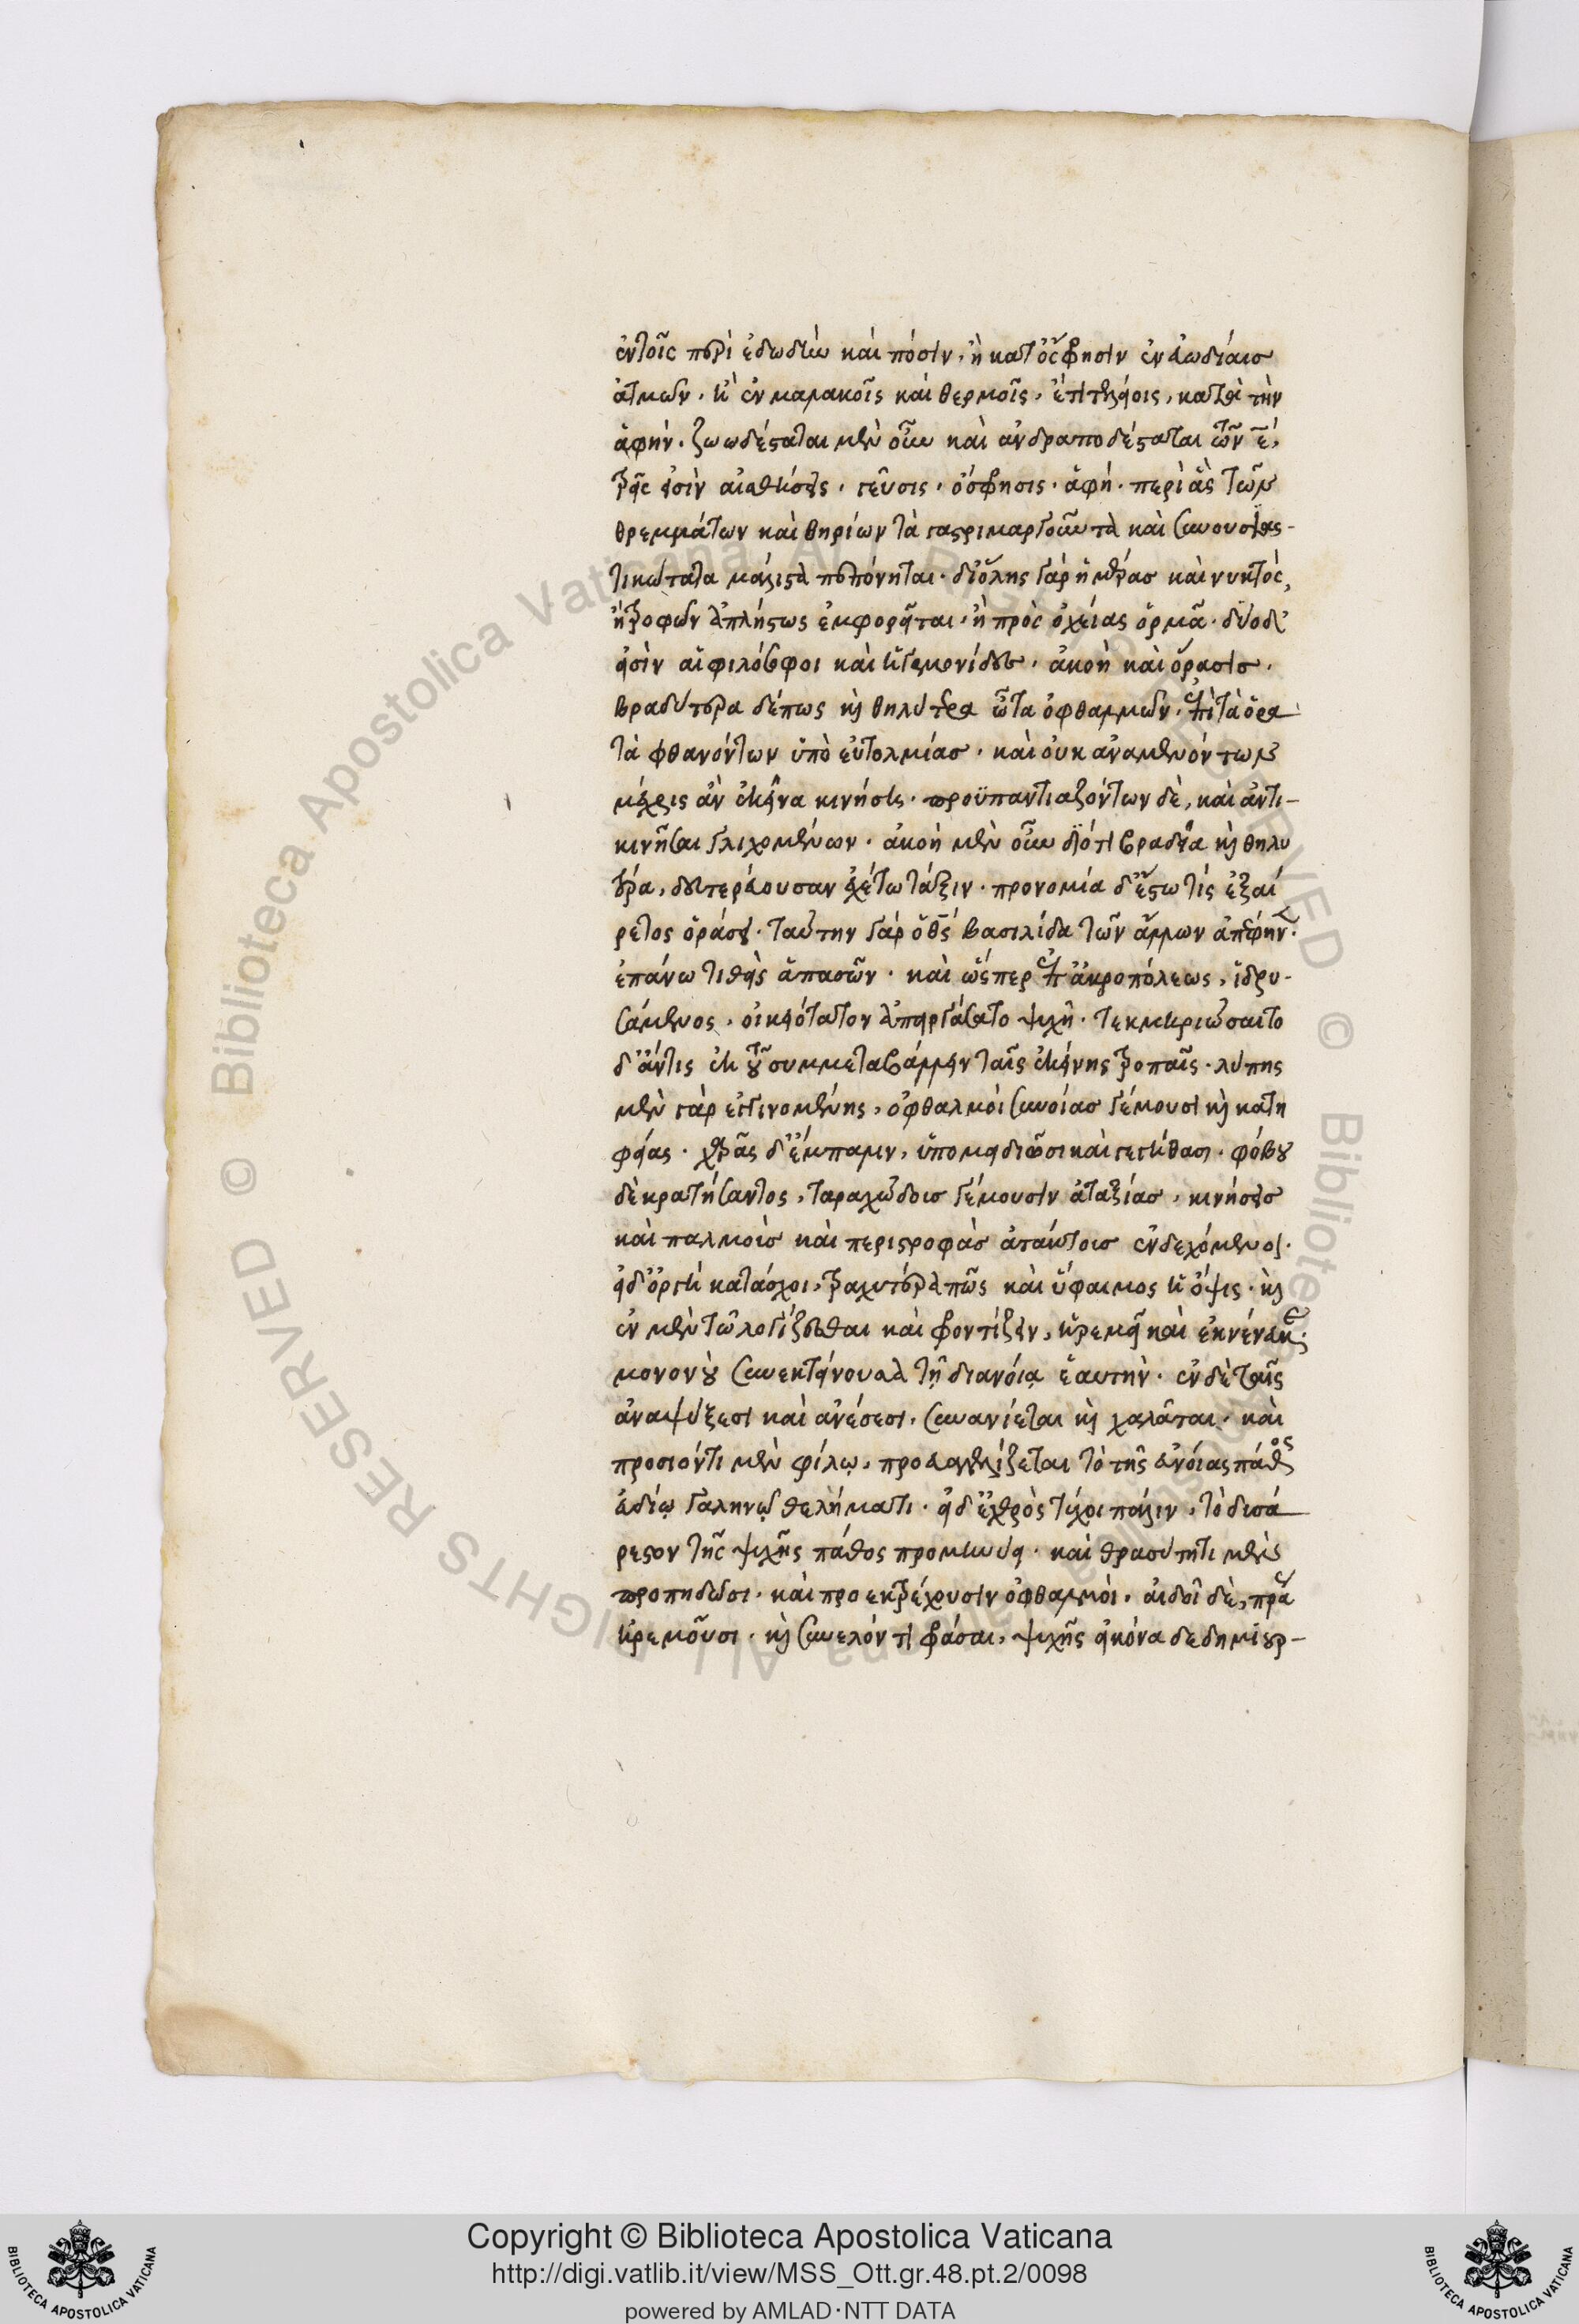 ἐν τοῖς περὶ ἐδωδὴν καὶ πόσιν, ἢ κατ' ὄσφρησιν ἐν εὐωδίαισ
ἀτμῶν, ἢ ἐν μαλακοῖς καὶ θερμοῖς, ἐπιτηδείοις, κατὰ τὴν
ἁφήν. ζωωδέσταται μὲν οὖν καὶ ἀνδραποδέσταται τῶν ε̄,
τρεῖς εἰσὶν αἰσθήσεις, γεῦσις, ὄσφρησις, ἁφή. περὶ ἃς τῶν
θρεμμάτων καὶ θηρίων τὰ γαστριμαργοῦντα καὶ συνουσιασ-
τικώτατα μάλιστα πεπόνηται. δι' ὅλης γὰρ ἡμέρασ καὶ νυκτὸς,
ἢ τροφῶν ἀπλήστως ἐμφορεῖται, ἢ πρὸς ὀχείας ὁρμᾶ. δύο δ'
εἰσὶν αἱ φιλόσοφοι καὶ ἡγεμονίδες, ἀκοὴ καὶ ὅρασισ.
βραδύτερα δέ πως καὶ θηλύτερα ὦτα ὀφθαλμῶν, ἐπὶ τὰ ὁρα
τὰ φθανόντων ὑπὸ εὐτολμίασ, καὶ οὐκ ἀναμενόντων
μέχρις ἂν ἐκεῖνα κινήσῃ, προϋπαντιαζόντων δὲ, καὶ ἀντι-
κινῆσαι γλιχομένων. ἀκοὴ μὲν οὖν διότι βραδεῖα καὶ θηλυ
τέρα, δευτερεύουσαν ἐχέτω τάξιν. προνομία δ' ἔστω τίς ἐξαί
ρετος ὁράσει. ταύτην γὰρ ὁ θεὸς βασιλίδα τῶν ἄλλων ἀπέφηνεν.
ἐπάνω τιθεὶς ἁπασῶν. καὶ ὥσπερ ἐπ' ἀκροπόλεως, ἱδρυ-
σάμενος, οἰκειότατον ἀπειργάσατο ψυχῇ. τεκμηριώσαιτο
δ' ἄν τις ἐκ τοῦ συμμεταβάλλειν ταῖς ἐκείνης τροπαῖς. λύπης
μὲν γὰρ ἐγγινομένης, ὀφθαλμοὶ συννοίασ γέμουσι καὶ κατη
φείας. χαρᾶς δ' ἔμπαλιν, ὑπομειδιῶσι καὶ γεγήθασι. φόβου
δὲ κρατήσαντος, ταραχώδουσ γέμουσιν ἀταξίασ, κινήσεισ
καὶ παλμοὺσ καὶ περιστροφὰσ ἀτάκτουσ ἐνδεχόμενοι.
εἰ δ' ὀργὴ κατάσχοι, τραχυτέρα πως καὶ ὕφαιμος ἡ ὄψις. καὶ
ἐν μὲν τῷ λογίζεσθαι καὶ φροντίζειν, ἠρεμεῖ καὶ ἐκνένευκε.
μονονοὺ συνεκτείνουσα τῇ διανοίᾳ ἑαυτὴν. ἐν δὲ ταῖς
ἀναψύξεσι καὶ ἀνέσεσι, συνανίεται καὶ χαλᾶται. καὶ
προσιόντι μὲν φίλῳ, προευαγγελίζεται τὸ τῆς εὐνοίας πάθος
εὐδίῳ γαληνῷ θελήματι. εἰ δ' ἐχθρὸς τύχοι πάλιν, τὸ δυσά
ρεστον τῆς ψυχῆς πάθος προμηνύει. καὶ θρασύτητι μὲν
προπηδῶσι, καὶ προεκτρέχουσιν ὀφθαλμοὶ. αἰδοῖ δὲ, πρᾳέως
ἠρεμοῦσι. καὶ συνελόντι φράσαι, ψυχῆς εἰκόνα δεδημιουρ-
Copyright © Biblioteca Apostolica Vaticana
http://digi.vatlib.it/view/MSS_Ott.gr.48.pt.2/0098
powered by AMLAD·NTT DATA
BIBLIOTECA APOSTOLICA VATICANA
BIBLIOTECA APOSTOLICA VATICANA